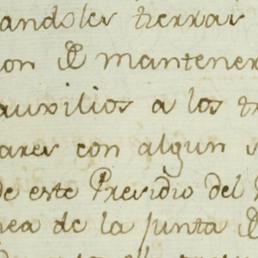 andoles tierras
on de mantener
auxilios a los
ares con algun
de este Presidio del
nea de la junta de